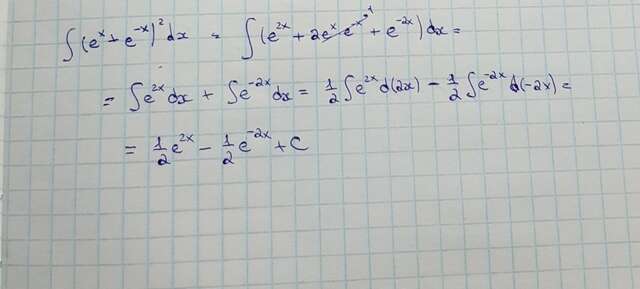 ∫(eˣ + e⁻ˣ)² dx = ∫(e²ˣ + 2eˣe⁻ˣ ¹ + e⁻²ˣ) dx =
= ∫e²ˣdx + ∫e⁻²ˣdx = 1/2 ∫e²ˣ d(2x) − 1/2 ∫e⁻²ˣ d(-2x) =
= 1/2 e²ˣ − 1/2 e⁻²ˣ + C